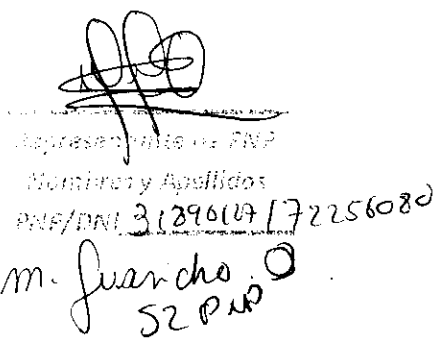 Representante de PNP
Nombres y Apellidos
PNP/DNI 31890127 / 72256080
M. Juancho . O
S2 PNP